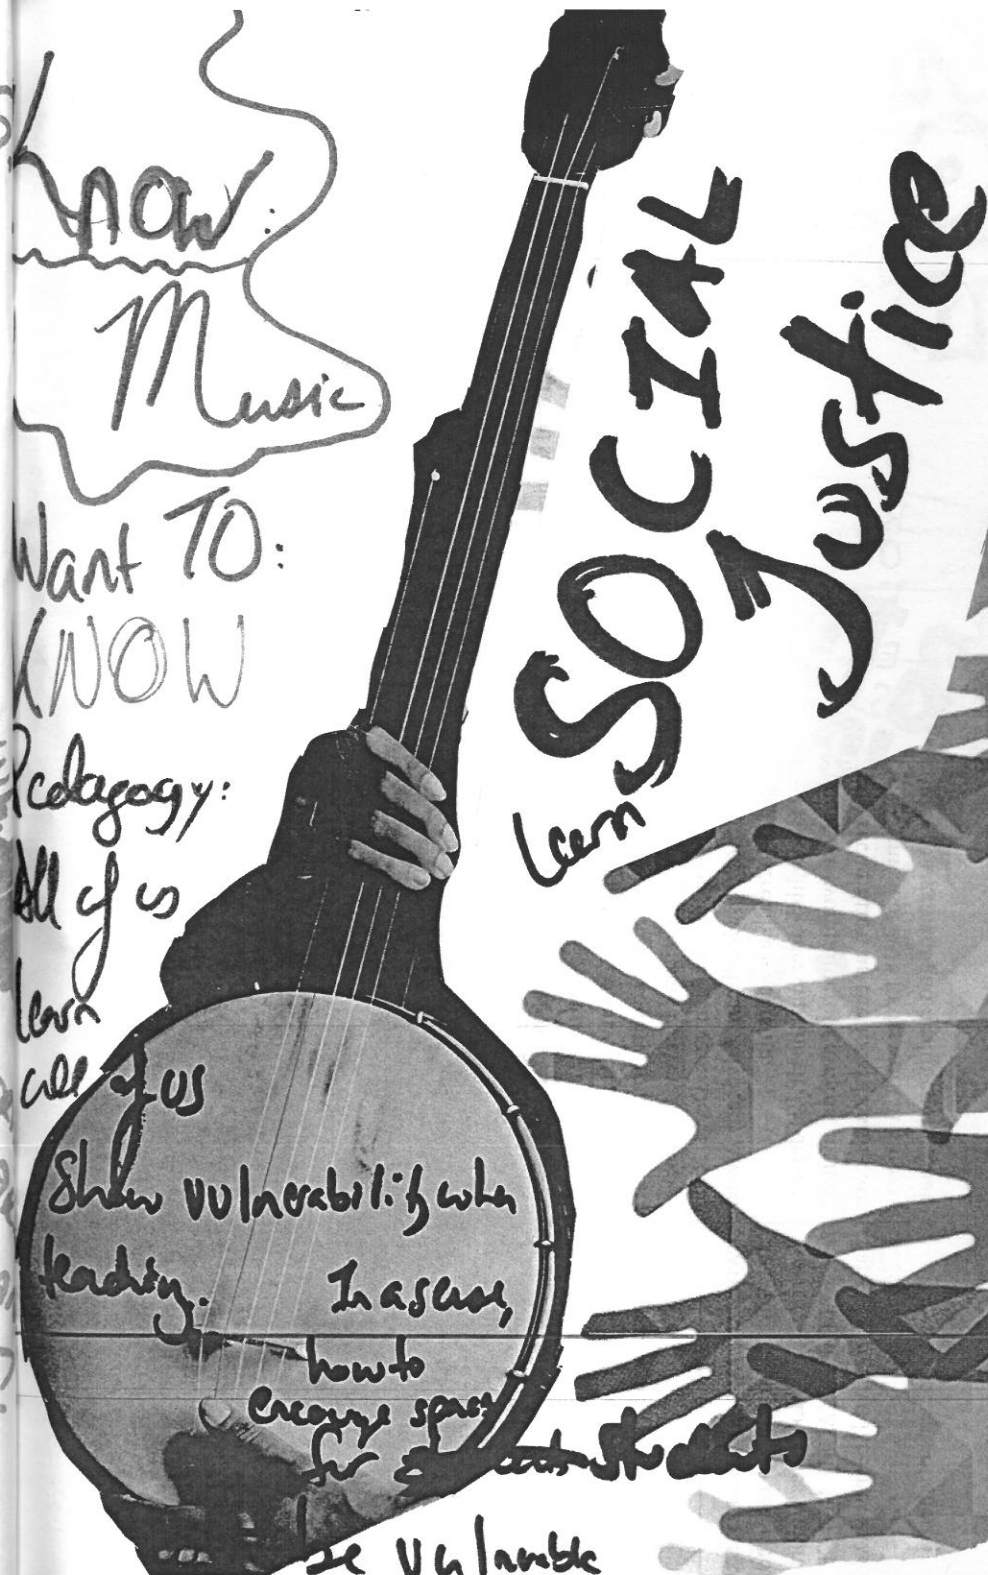 Know:
Music
Want TO:
KNOW
Pedagogy:
All of us
learn
all of us
Show vulnerability when
teaching.
In a sense,
how to
encourage space
for students
be vulnerable
learn
SOCIAL
Justice